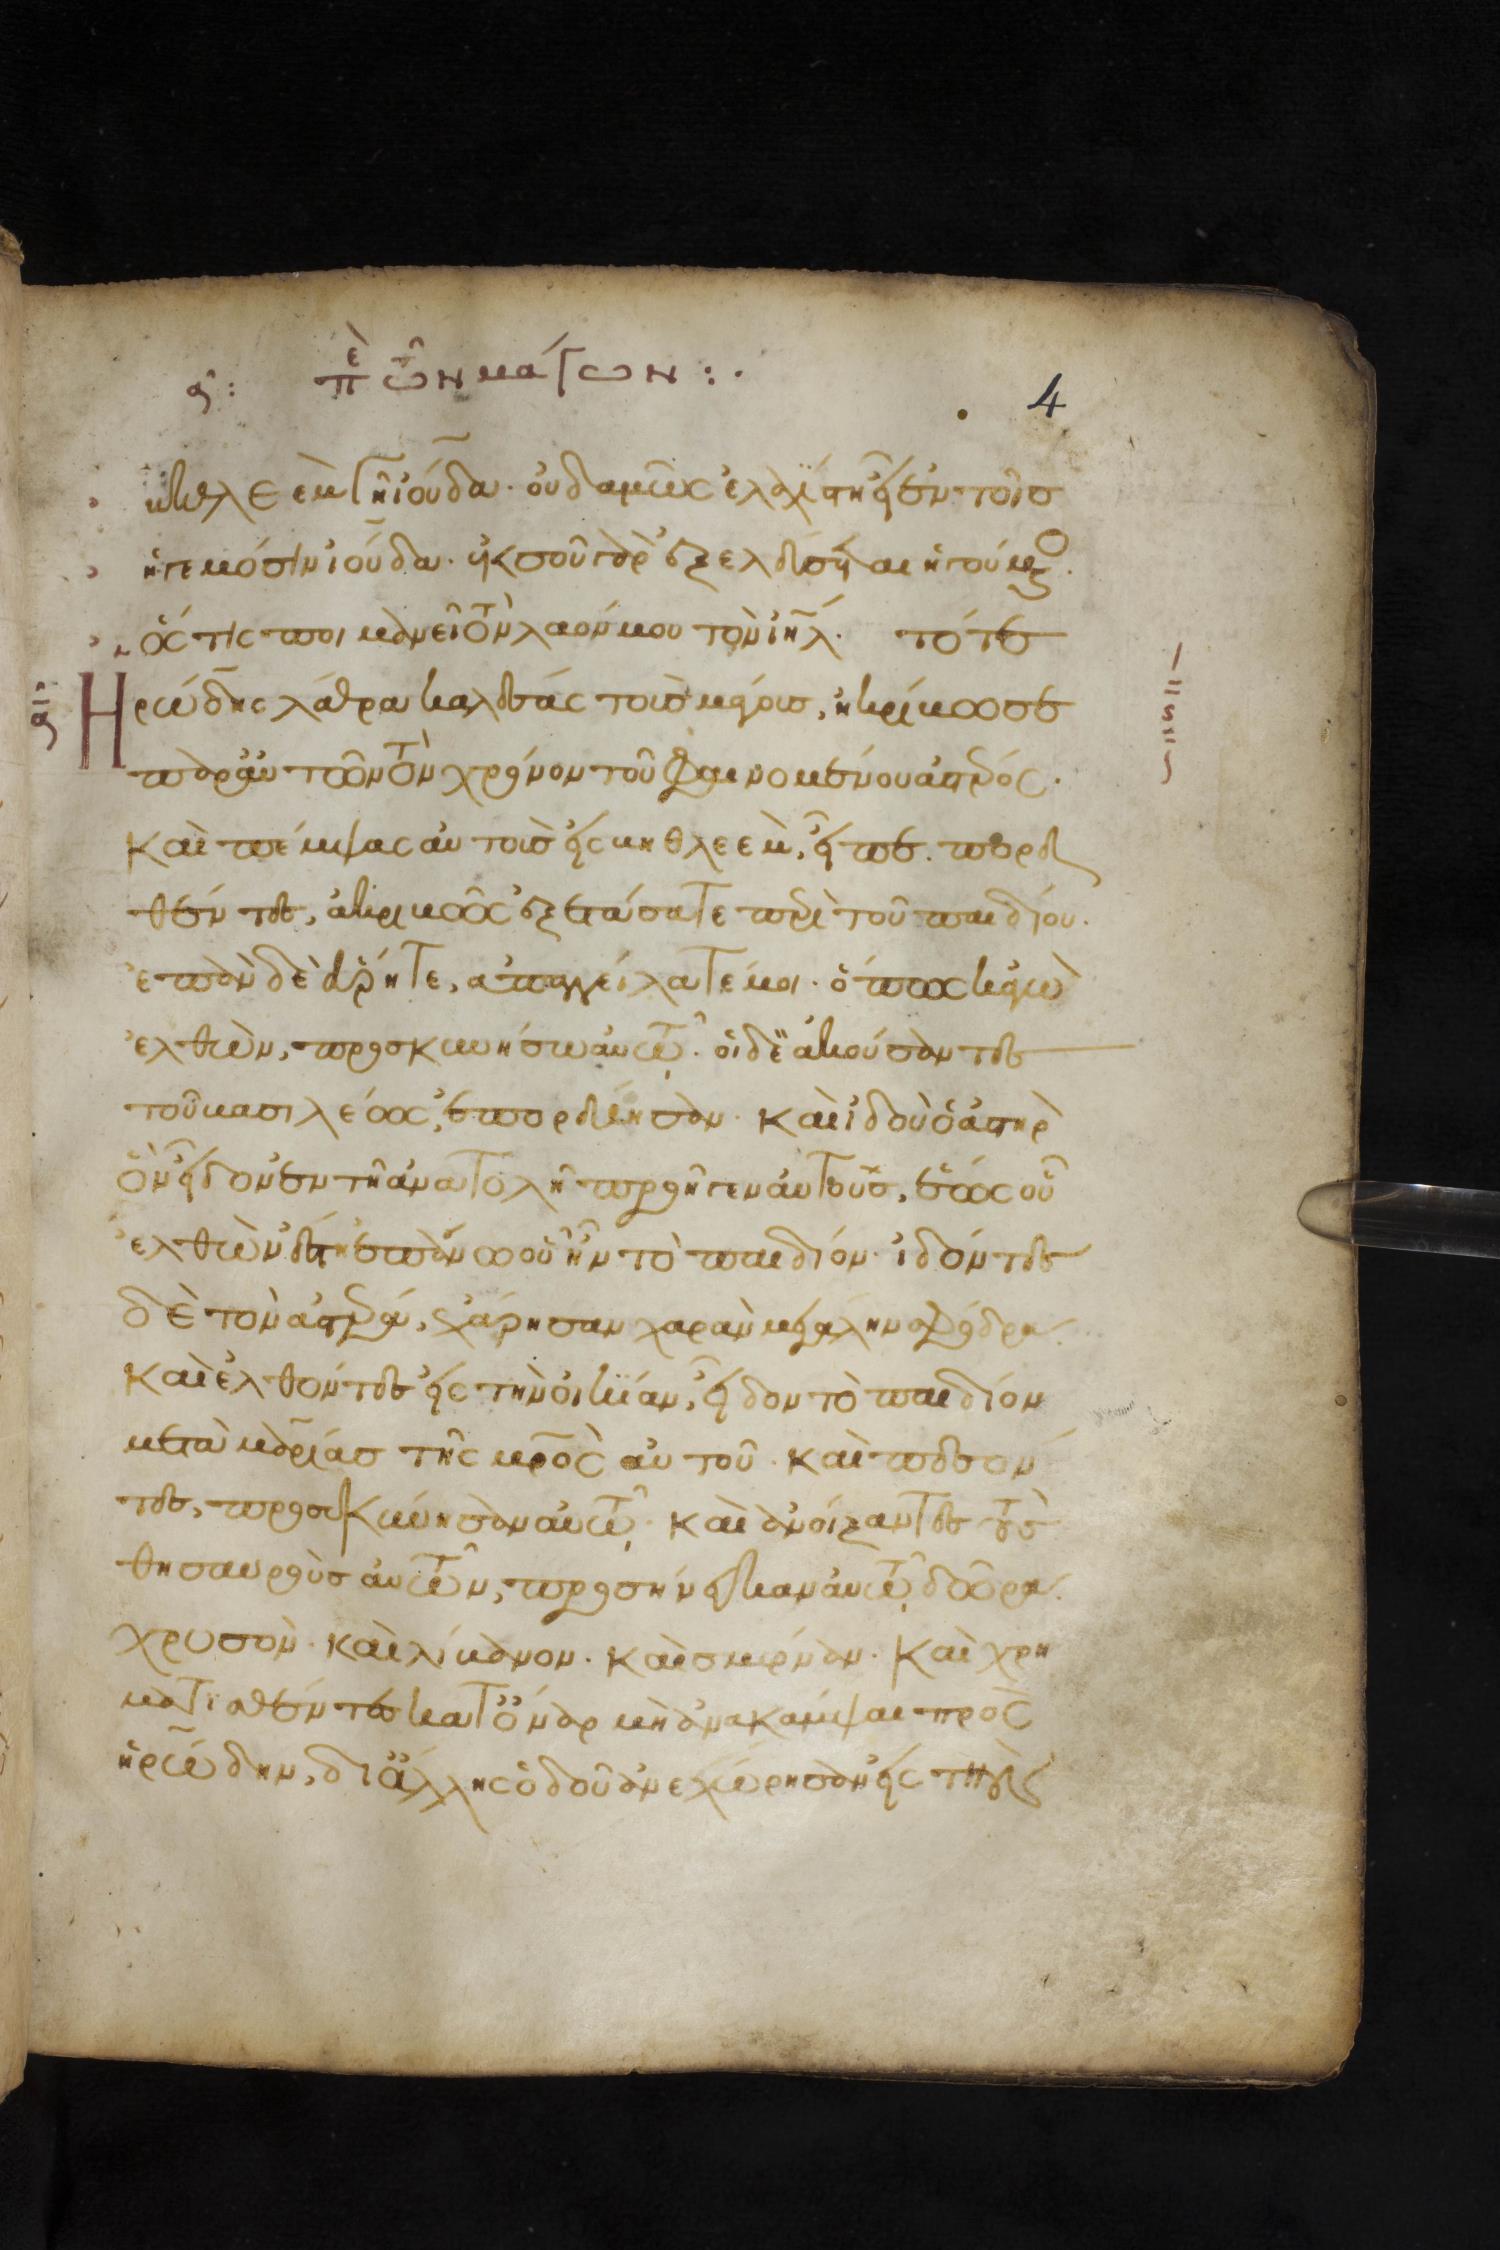 α: περὶ τῶν μάγων :·
4
βηθλεὲμ γῆ ἰούδα· οὐδαμῶς ἐλαχίστη εἶ ἐν τοῖσ
ἡγεμόσιν ἰούδα· ἐκ σοῦ γὰρ ἐξελεύσεται ἡγούμενο
ὅς τις ποιμανεῖ τὸν λαόν μου τὸν ἰηλ· τότε
Ἡρώδης λάθρα καλέσας τοὺσ μάγουσ, ἠκρίβωσε
παρ αὐτῶν τὸν χρόνον τοῦ φαινομένου ἀστέρος·
Καὶ πέμψας αὐτοὺσ εἰς βηθλεὲμ, εἶπε· πορευ
θέντες, ἀκριβῶς ἐξετάσατε περὶ τοῦ παιδίου·
ἐπὰν δὲ εὕρητε, ἀπαγγείλατέ μοι· ὅπως κἀγὼ
ἐλθὼν, προσκυνήσω αὐτῷ· οἱ δὲ ἀκούσαντες
τοῦ βασιλέως, ἐπορεύθησαν· καὶ ἰδοὺ ὁ ἀστὴρ
ὃν εἶδον ἐν τῆ ἀνατολῆ προῆγεν αὐτοὺσ, ἕως οὗ
ἐλθὼν ἔστη ἐπάνω οὗ ἦν τὸ παιδίον· ἰδόντες
δὲ τὸν ἀστέρα, ἐχάρησαν χαρὰν μεγάλην σφόδρα·
Καὶ ἐλθόντες εἰς τὴν οἰκίαν, εἶδον τὸ παιδίον
μετὰ μαρίασ τῆς μρὸς αὐτοῦ· καὶ πεσόν
τες, προσεκύνησαν αὐτῷ· καὶ ἀνοίξαντες τοὺσ
θησαυροὺσ αὐτῶν, προσήνεγκαν αὐτῷ δῶρα·
χρυσὸν· καὶ λίβανον· καὶ σμύρναν· Καὶ χρη
ματισθέντες κατ ὄναρ μὴ ἀνακάμψαι πρὸς
ἡρώδην, δι ἄλλης ὁδοῦ ἀνεχώρησαν εἰς τὴν